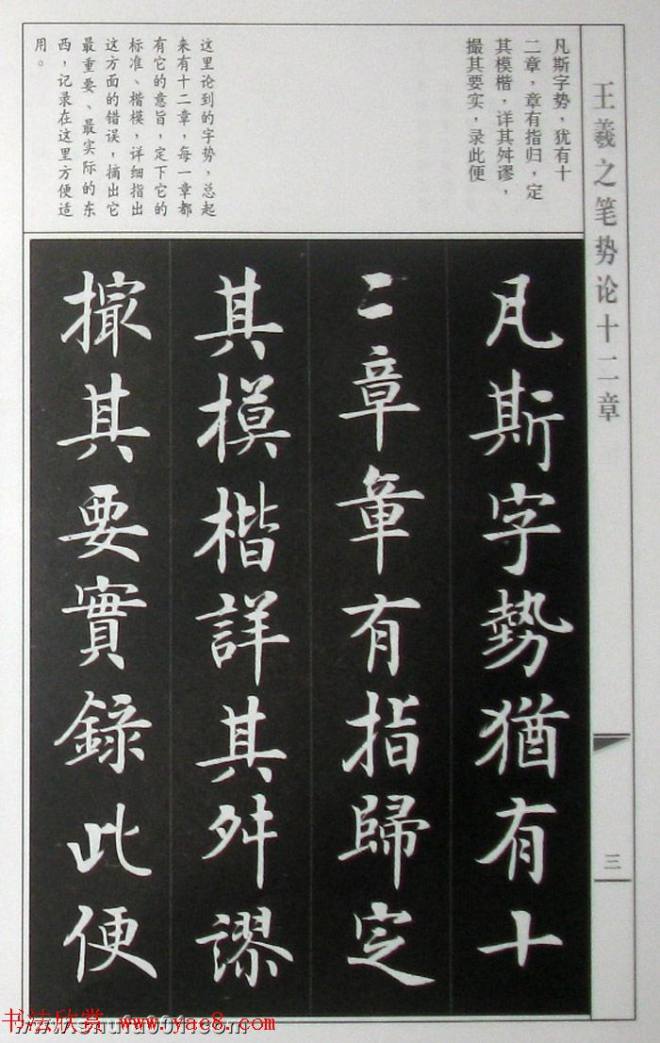 王羲之笔势论十二章
凡斯字势，犹有十
二章，章有指归，定
其模楷，详其舛谬，
撮其要实，录此便
这里论到的字势，总起
来有十二章，每一章都
有它的意旨，定下它的
标准、楷模，详细指出
这方面的错误，摘出它
最重要、最实际的东
西，记录在这里方便适
用。
凡斯字勢猶有十
二章章有指歸定
其模楷詳其舛謬
撮其要實錄此便
三
书法欣赏 www.yac8.com